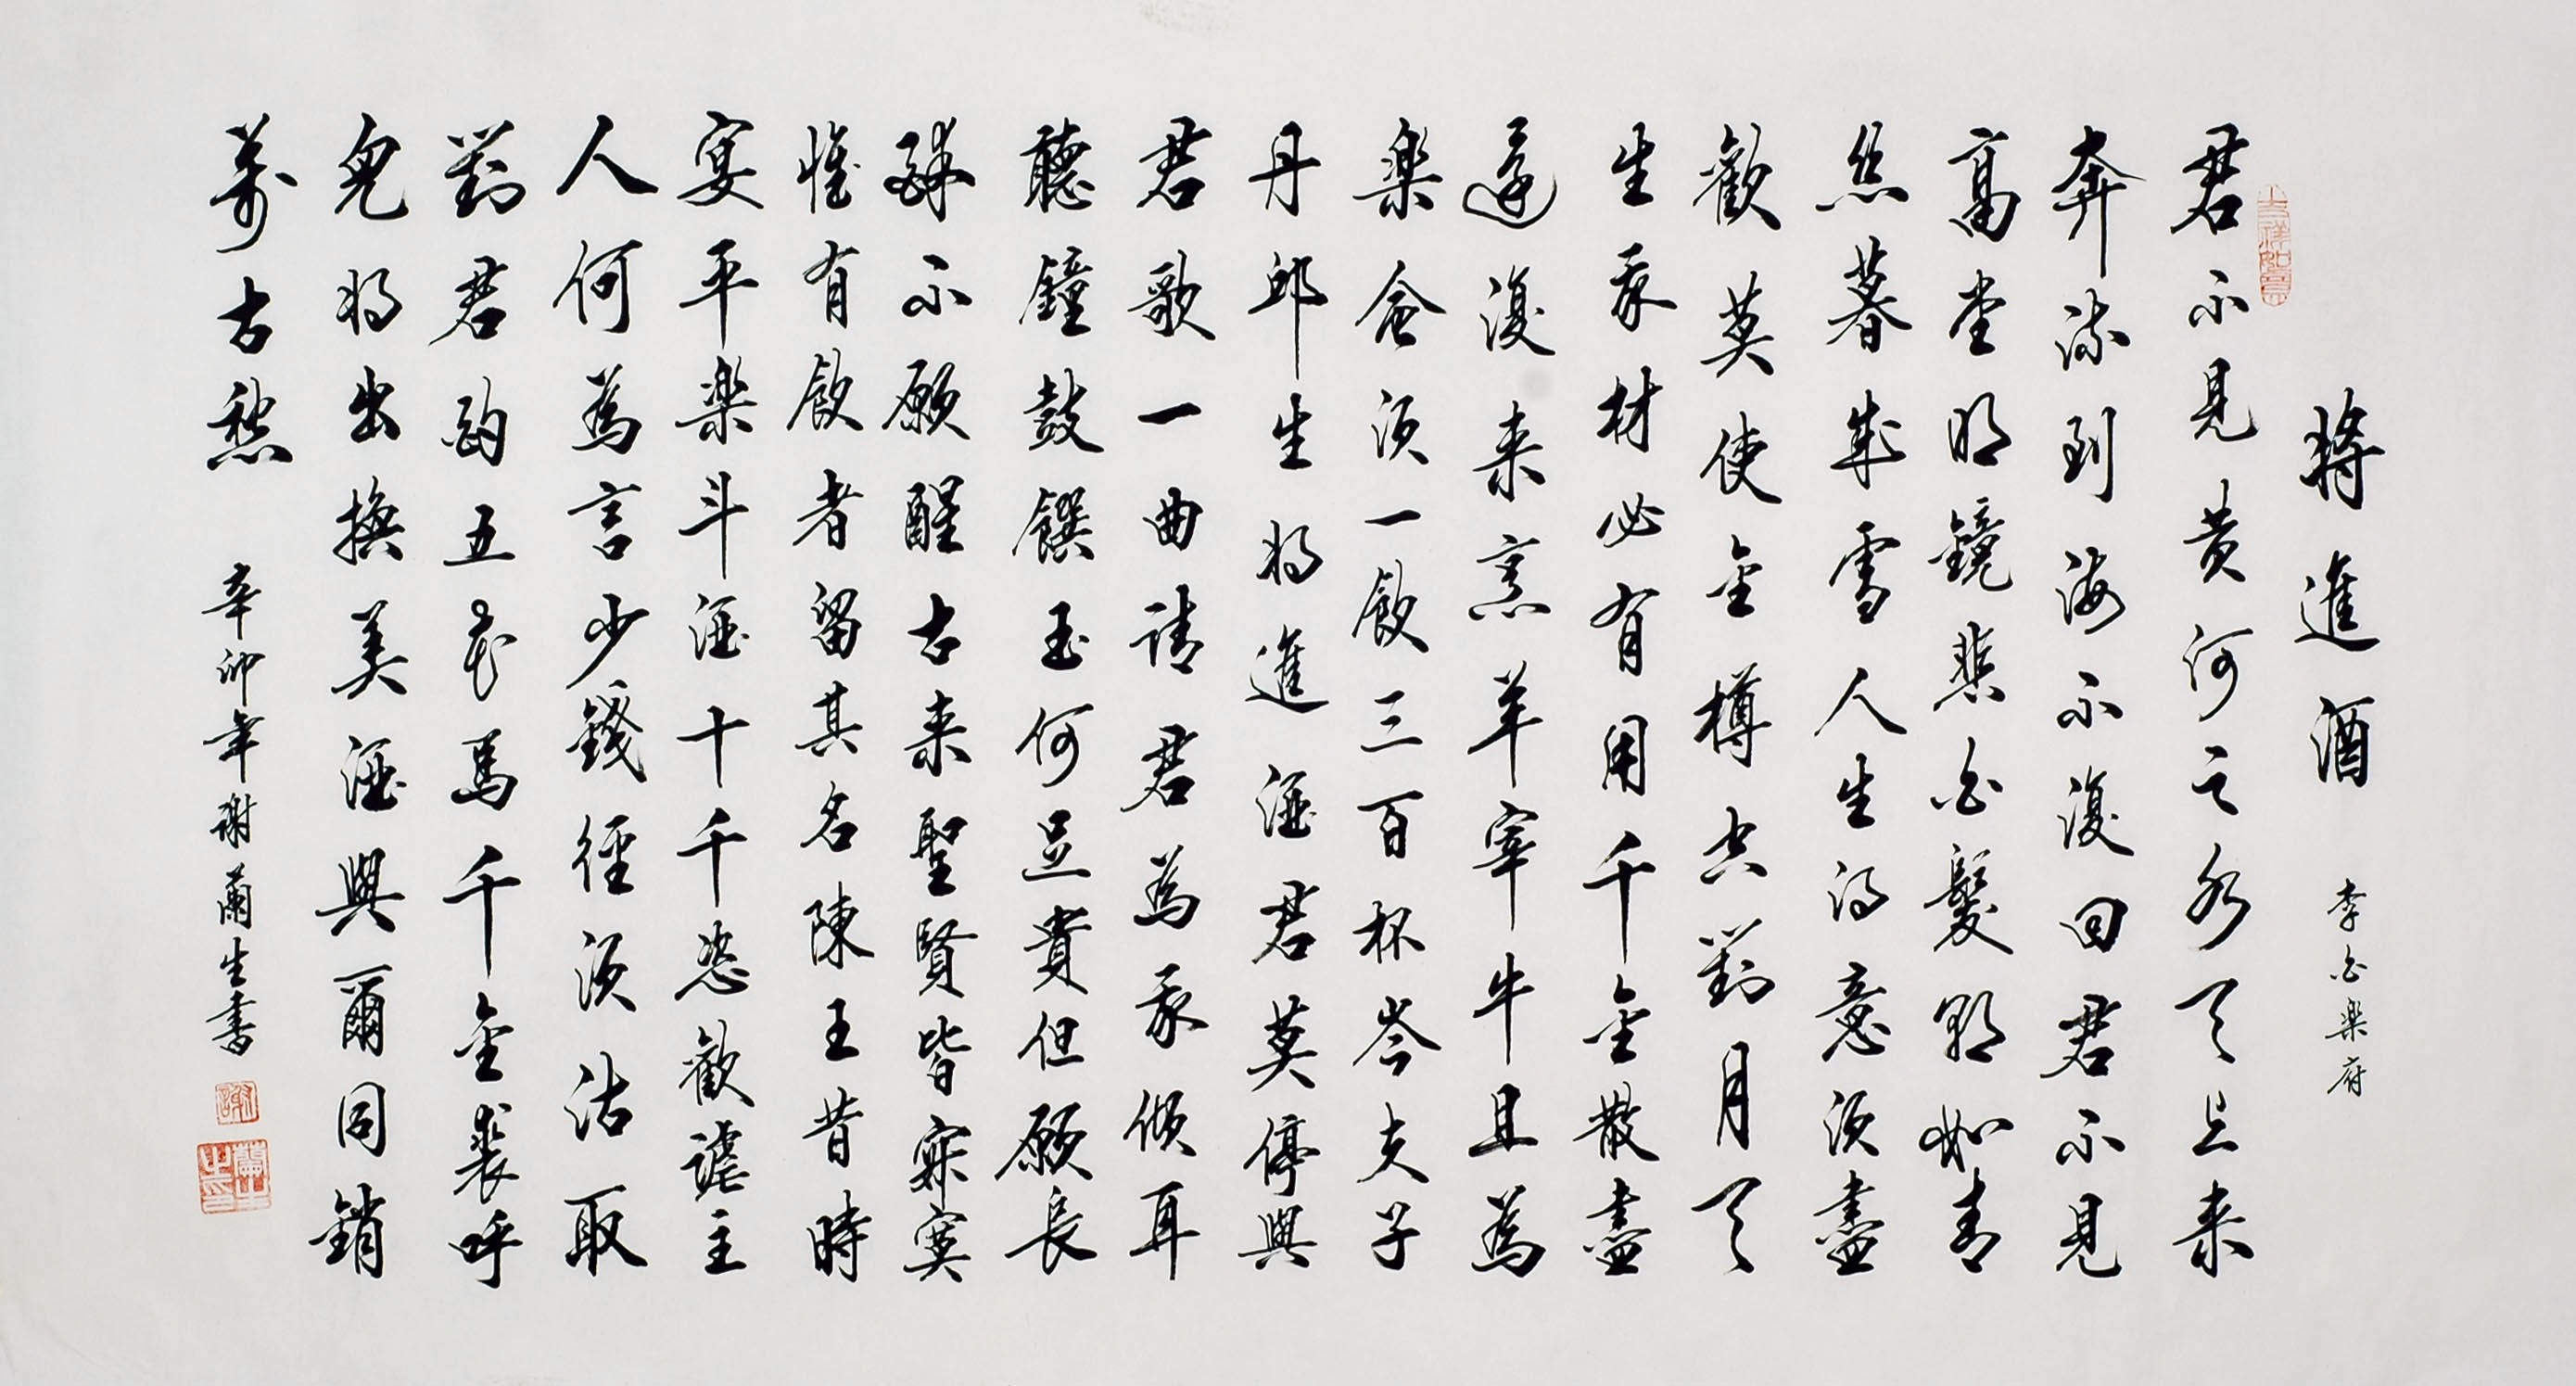 將進酒 李白樂府
君不見黄河之水天上来
奔流到海不復回君不見
高堂明鏡悲白髮朝如青
丝暮成雪人生得意須盡
歡莫使金樽空對月天
生我材必有用千金散盡
還復来烹羊宰牛且為
樂會須一飲三百杯岑夫子
丹邱生將進酒君莫停與
君歌一曲請君為我傾耳
聽鐘鼓饌玉何足貴但願長
醉不願醒古来聖賢皆寂寞
惟有飲者留其名陳王昔時
宴平樂斗酒十千恣歡謔主
人何為言少錢徑須沽取
對君酌五花馬千金裘呼
兒將出換美酒與爾同銷
萬古愁
辛卯年謝蘭生書
吉祥如意
謝